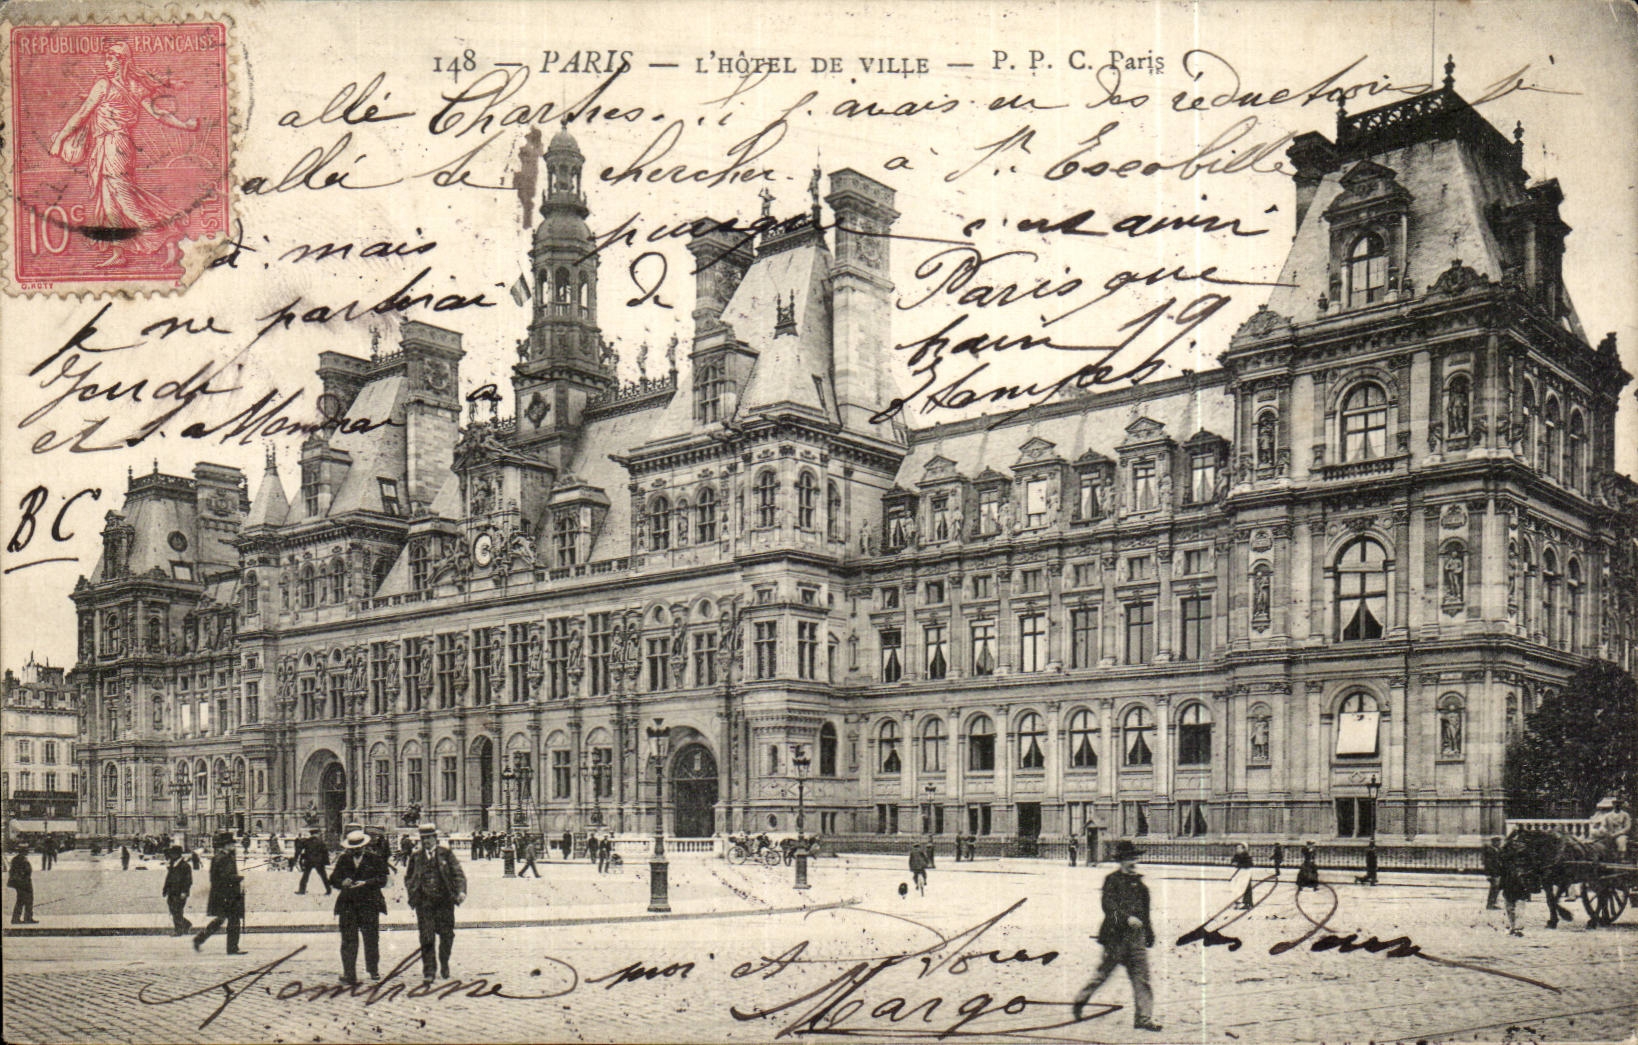 RÉPUBLIQUE FRANÇAISE
10c
O. ROTY
148 — PARIS — L'HÔTEL DE VILLE — P. P. C. Paris
allé Chartres. j'avais eu des réductions j'
allé te chercher. à Escobille
à. mais puisque c'est ainsi
je ne partirai de Paris que
Jeudi train 19
et à Etampes.
BC
embrasse moi et vous les deux
Margo